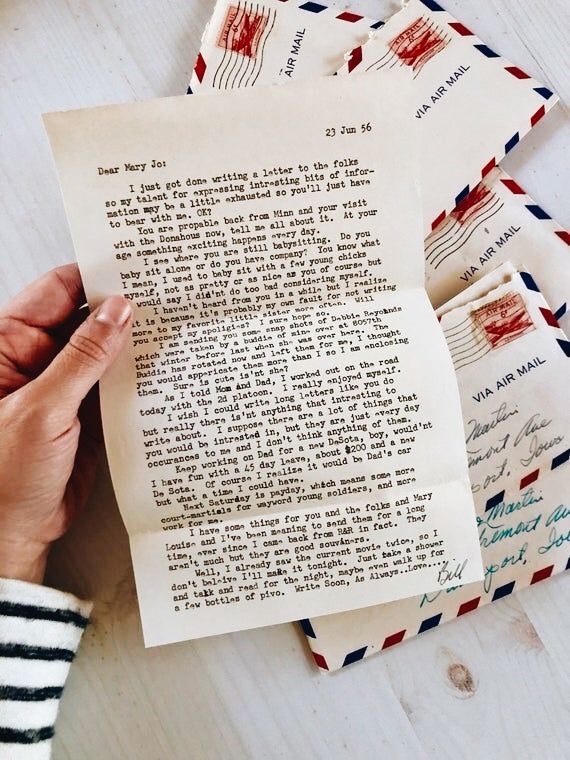 23 Jun 56
Dear Mary Jo:
I just got done writing a letter to the folks
so my talent for expressing intresting bits of infor-
mation may be a little exhausted so you'll just have
to bear with me. OK?
You are propable back from Minn and your visit
with the Donahous now, tell me all about it. At your
age something exciting happens every day.
I see where you are still babysitting. Do you
baby sit alone or do you have company? You know what
I mean, I used to baby sit with a few young chicks
myself, not as pretty or as nice as you of course but
would say I did'nt do too bad considering myself.
I haven't heard from you in a while but I realize
it is because it's probably my own fault for not writing
more to my favorite little sister more often. Will
you accept my apoligies? I sure hope so.
I am sending you some snap shots of Debbie Reyonlds
which were taken by a buddie of mine over at 8057th
that winter before last when she was over here. The
Buddie has rotated now and left them for me, I thought
you would appericate them more than I so I am enclosing
them. Sure is cute is'nt she?
As I told Mom And Dad, I worked out on the road
today with the 2d platoon. I really enjoyed myself.
I wish I could write long letters like you do
but really there is'nt anything that intresting to
write about. I suppose there are a lot of things that
you would be intrested in, but they are just every day
occurances to me and I don't think anything of them.
Keep working on Dad for a new DeSota, boy, would'nt
I have fun with a 45 day leave, about $200 and a new
De Sota. Of course I realize it would be Dad's car
but what a time I could have.
Next Saturday is payday, which means some more
court-martials for wayword young soldiers, and more
work for me.
I have some things for you and the folks and Mary
Louise and I've been meaning to send them for a long
time, ever since I came back from R&R in fact. They
aren't much but they are good souvaners.
Well, I already saw the current movie twice, so I
don't beleive I'll make it tonight. Just take a shower
and talk and read for the night, maybe even walk up for
a few bottles of pivo. Write Soon, As Always..Love....
Bill
AIR MAIL
VIA AIR MAIL
VIA AIR MAIL
Martin
Ave
Iowa
Martin
Fremont Ave
Iowa